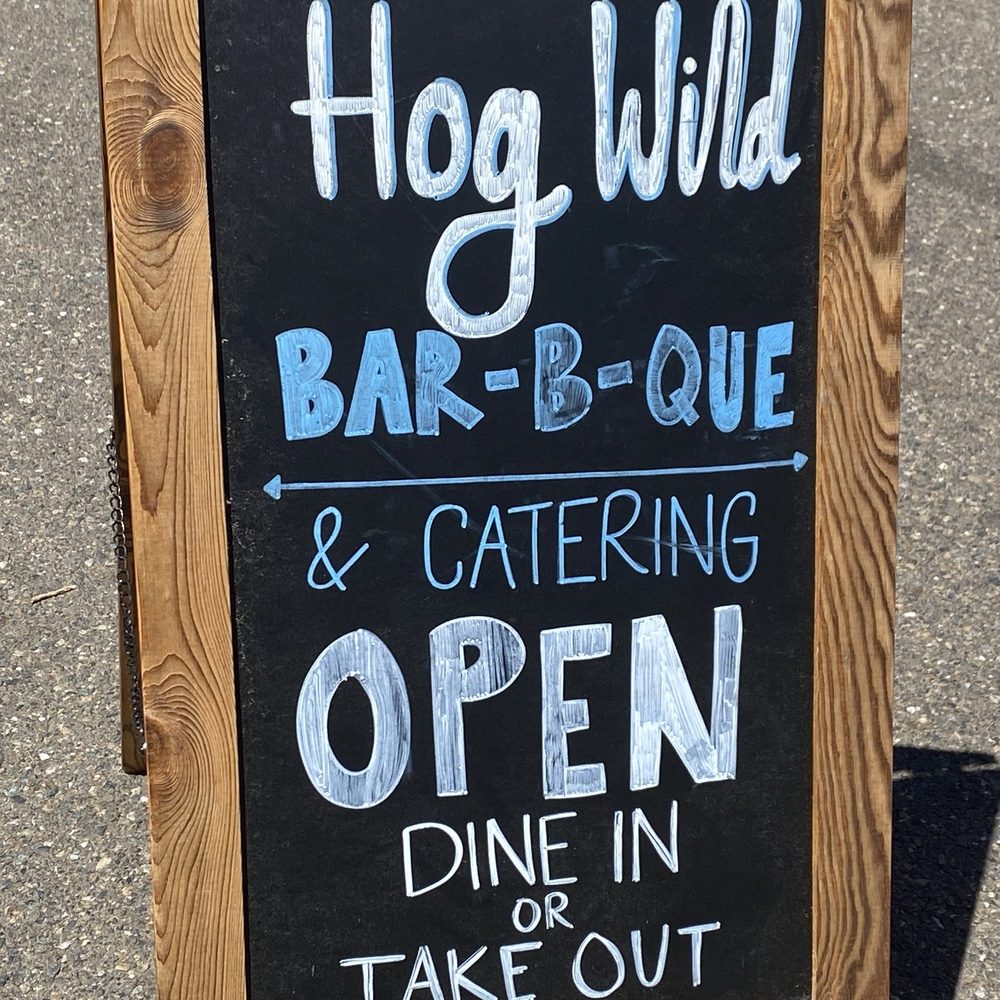 Hog Wild
BAR-B-QUE
& CATERING
OPEN
DINE IN
OR
TAKE OUT